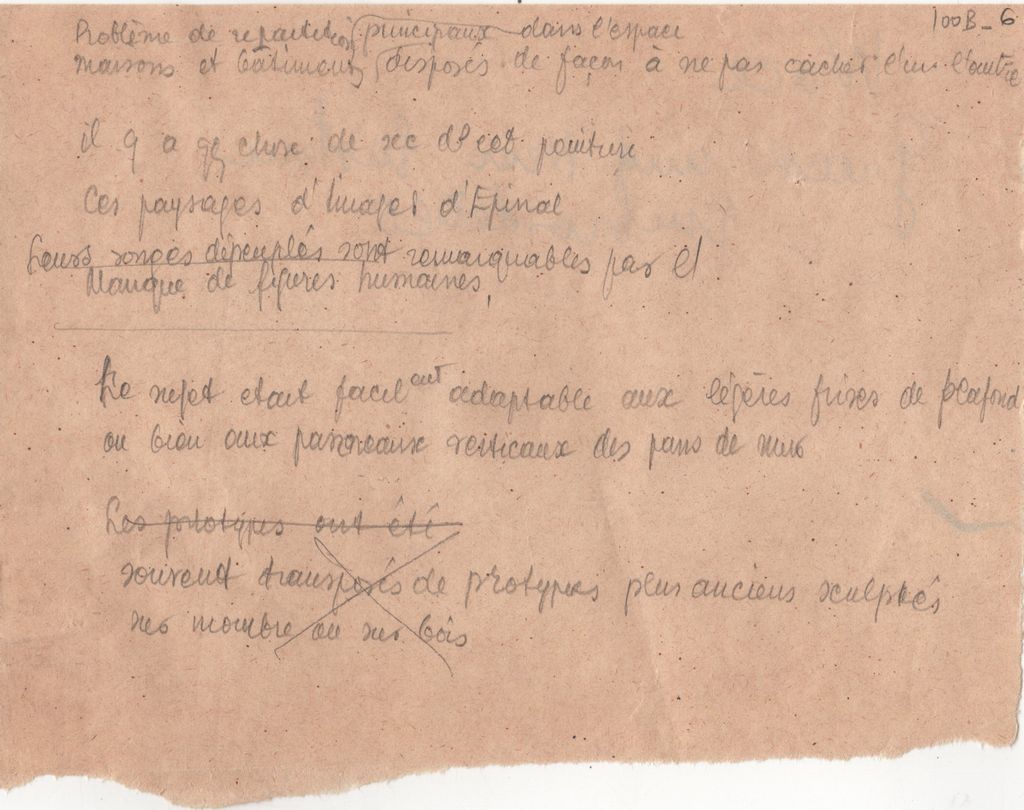 100B_6
Problème de répartition principaux dans l'espace
maisons et bâtiments disposés de façon à ne pas cacher l'un l'autre
il y a qq chose de sec ds cet peinture
Ces paysages d'Images d'Epinal
Leurs dépeuplés sont remarquables par el
Manque de figures humaines,
Le sujet etait facil ant adaptable aux légères frises de plafond
ou bien aux panneaux verticaux des pans de murs
Les prototypes ont été
souvent transposés de prototypes plus anciens sculptés
sur ou sur bois